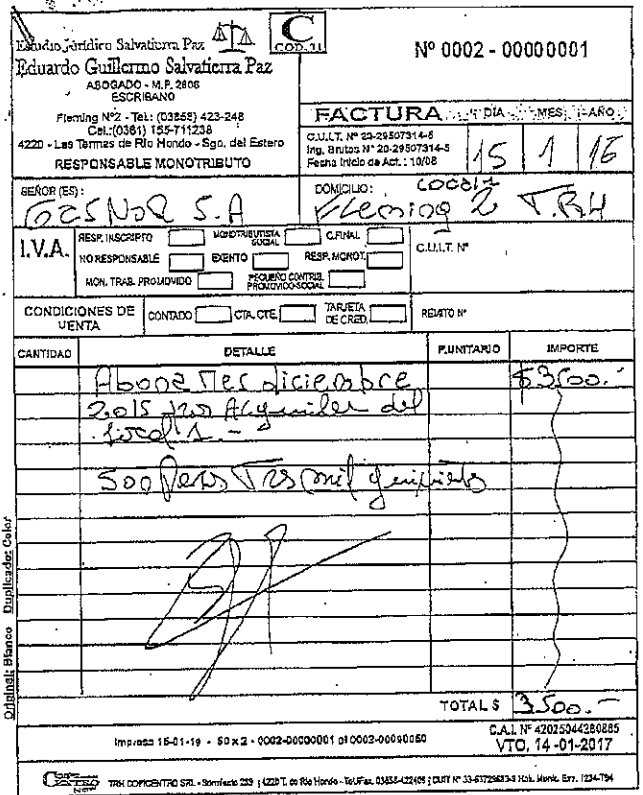 Estudio Jurídico Salvatierra Paz
Eduardo Guillermo Salvatierra Paz
ABOGADO - M.P. 2808
ESCRIBANO
Fleming Nº2 - Tel.: (03858) 423-248
Cel.:(0381) 155-711238
4220 - Las Termas de Río Hondo - Sgo. del Estero
RESPONSABLE MONOTRIBUTO
C
COD. 11
Nº 0002 - 00000001
FACTURA
DIA MES AÑO
15 1 16
C.U.I.T. Nº 20-29507314-5
Ing. Brutos Nº 20-29507314-5
Fecha Inicio de Act.: 10/08
SEÑOR (ES):
GasNor S.A
DOMICILIO:
Local 1
Fleming 2 T.R.H
I.V.A.
RESP. INSCRIPTO MONOTRIBUTISTA SOCIAL C.FINAL
NO RESPONSABLE EXENTO RESP. MONOT.
MON. TRAB. PROMOVIDO PEQUEÑO CONTRIB. PROMOVIDO SOCIAL
C.U.I.T. Nº
CONDICIONES DE VENTA
CONTADO CTA. CTE. TARJETA DE CRED.
REMITO Nº
CANTIDAD DETALLE P.UNITARIO IMPORTE
Abona Mes diciembre $3500.-
2015 por Alquiler del
local 1.-
Son Pesos Tres mil quinientos
TOTAL $ 3500.-
Original: Blanco Duplicado: Color
Impreso 15-01-16 - 50 x 2 - 0002-00000001 al 0002-00000050
C.A.I. Nº 42025044280885
VTO. 14-01-2017
TRH COPICENTRO SRL - Sarmiento 239